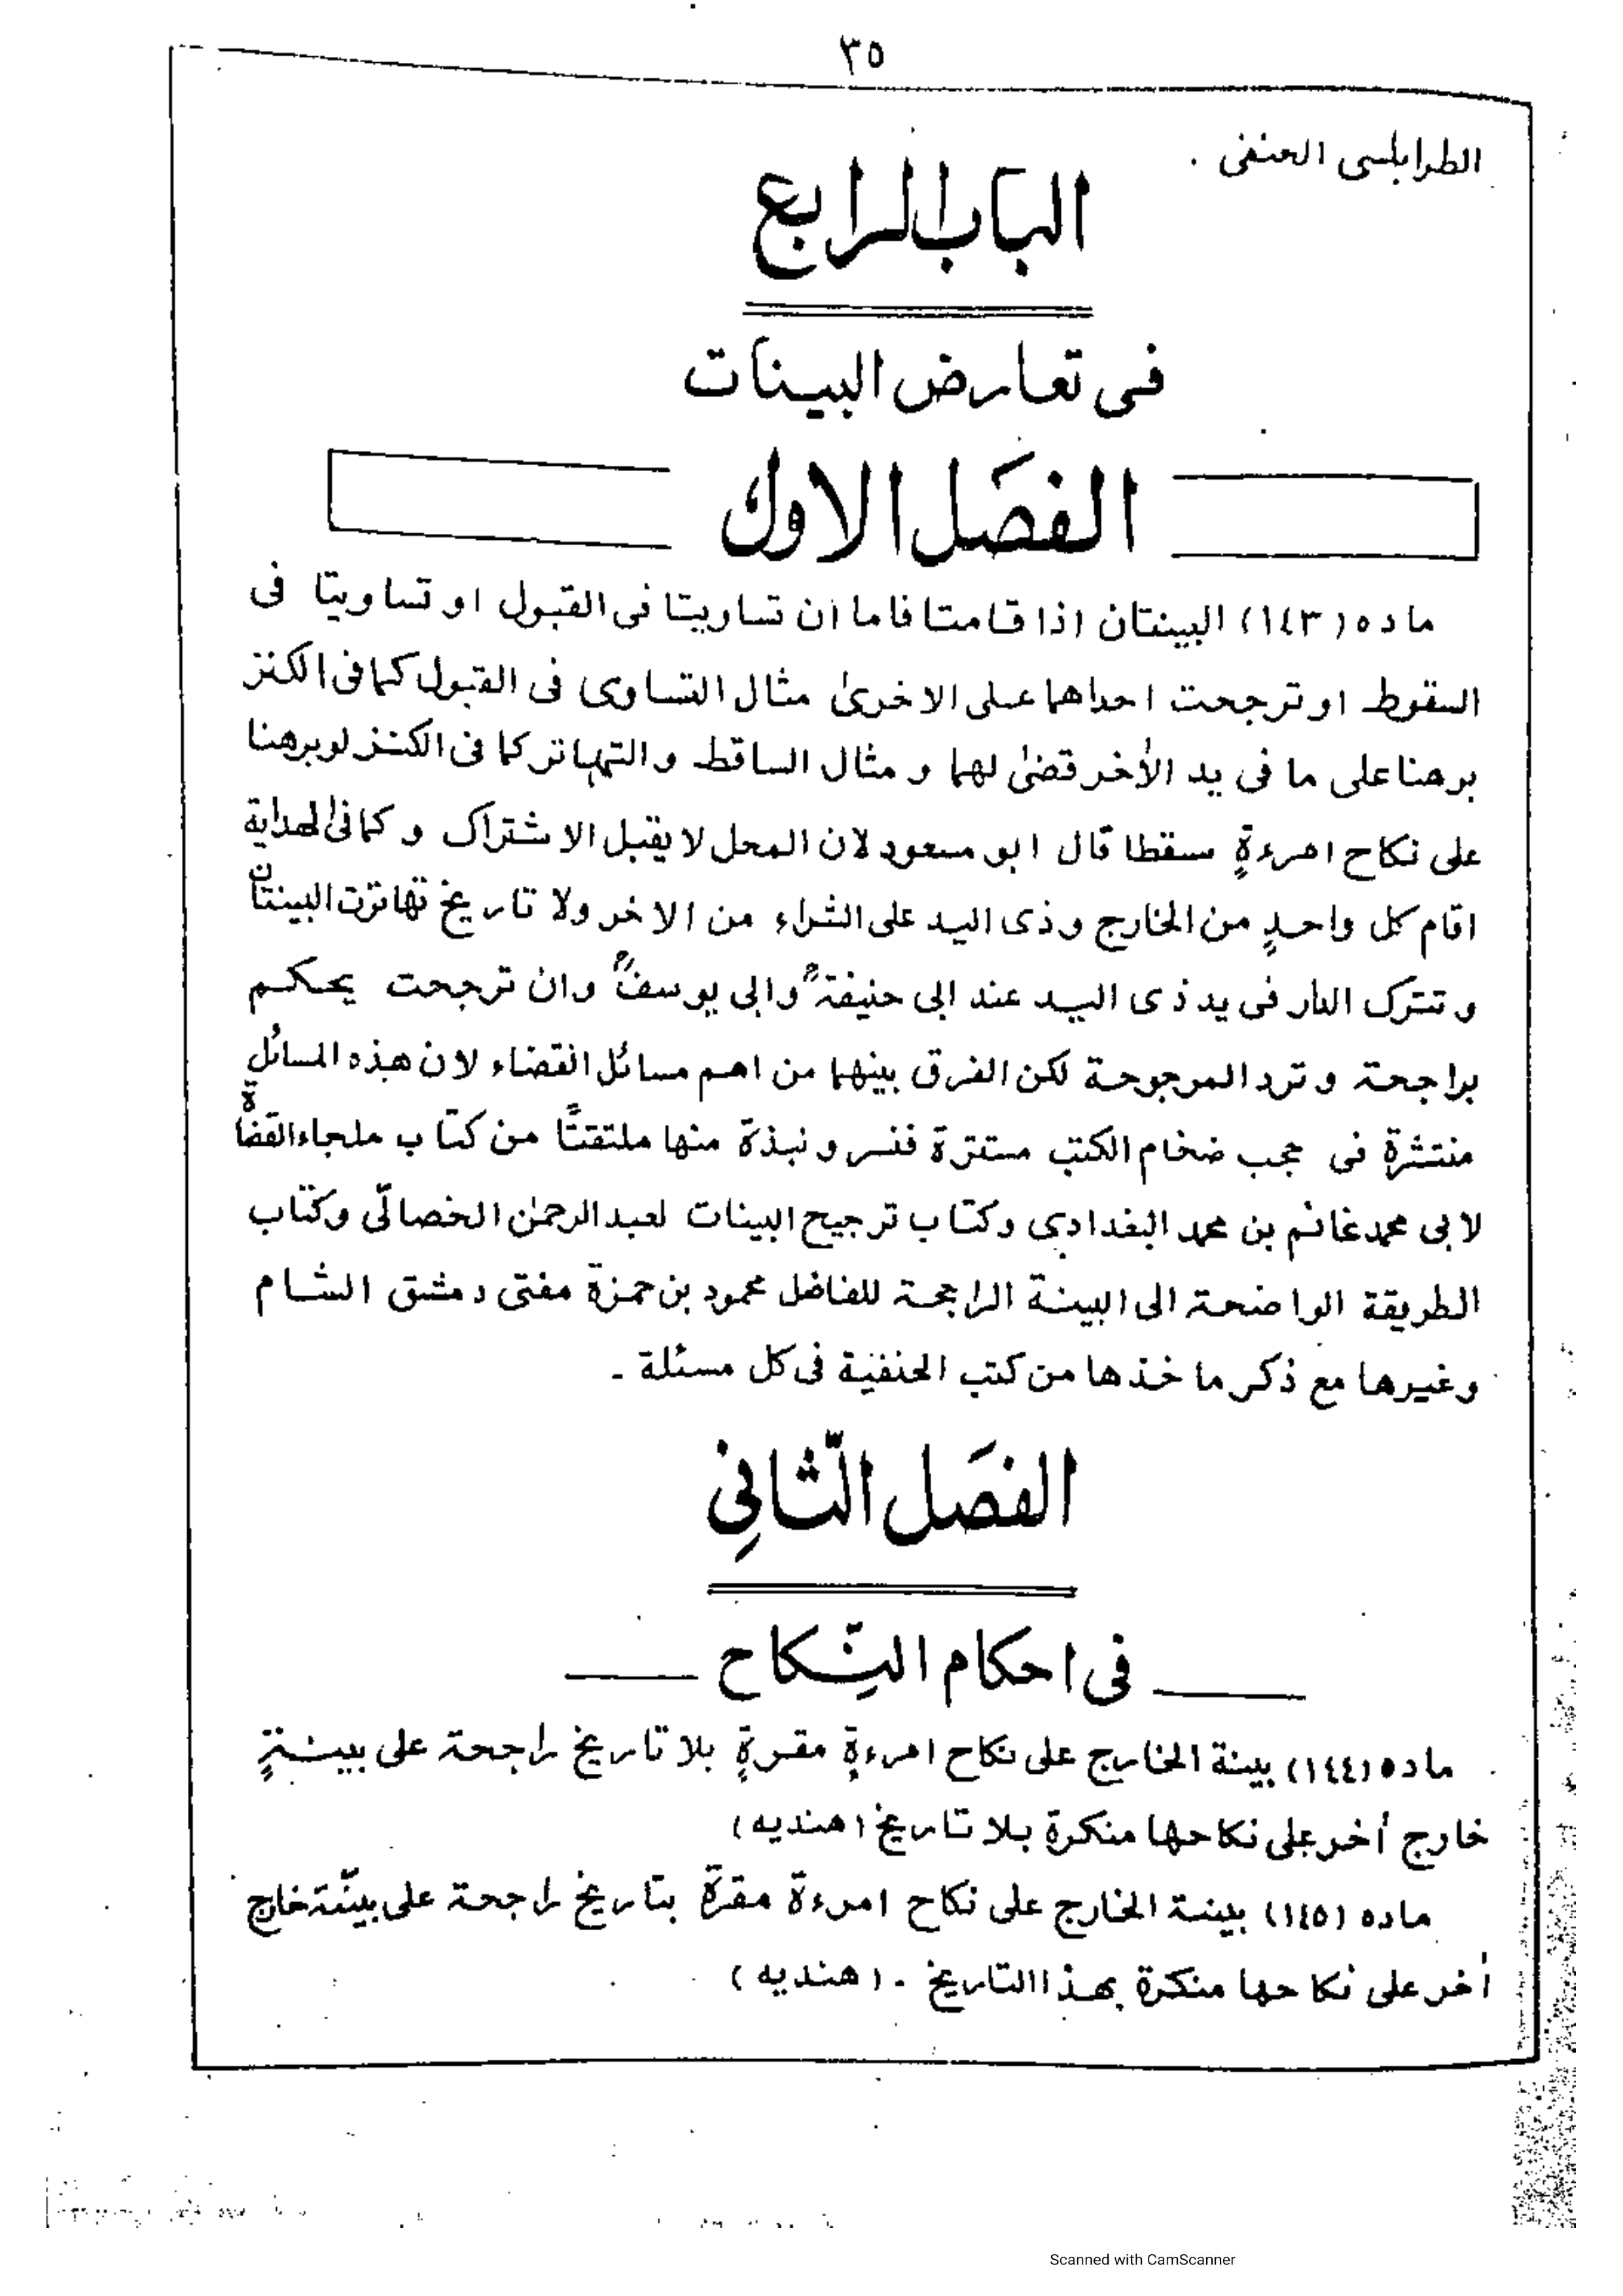 ٣٥
الطرابلسى الحنفى .
الباب الرابع
فى تعارض البينات
الفصَل الاول
ماده (١٤٣) البينتان اذا قامتا فاما ان تساويتا فى القبول او تساويتا فى
السقوط او ترجحت احداهما على الاخرىٰ مثال التساوى فى القبول كما فى الكنز
برهنا على ما فى يد الأخر قضىٰ لهما و مثال الساقط و التهاتر كما فى الكنز لو برهنا
على نكاح امرءةٍ سقطا قال ابو مسعود لان المحل لا يقبل الاشتراك و كما فى الهداية
اقام كل واحدٍ من الخارج و ذى اليد على الشراء من الاخر ولا تاريخ تهاترت البينتان
و تترك الدار فى يد ذى اليد عند ابى حنيفةؒ وابى يوسفؒ وان ترجحت يحكم
براجحة و ترد المرجوحة لكن الفرق بينهما من اهم مسائل القضاء لان هذه المسائل
منتشرة فى حجب ضخام الكتب مستترة فنسر و نبذة منها ملتقتًا من كتاب ملجاء القضاة
لابى محمد غانم بن محمد البغدادى وكتاب ترجيح البينات لعبد الرحمٰن الخصالّى وكتاب
الطريقة الواضحة الى البينة الراجحة للفاضل محمود بن حمزة مفتى دمشق الشام
وغيرها مع ذكر ما خذها من كتب الحنفية فى كل مسئلة ـ
الفصَل الثّانىِ
فى احكام النّكاح
ماده (١٤٤) بينة الخارج على نكاح امرءةٍ مقرةٍ بلا تاريخ راجحة على بينةٍ
خارج أخر على نكاحها منكرة بلا تاريخ (هنديه)
ماده (١٤٥) بينة الخارج على نكاح امرءة مقرّة بتاريخ راجحة على بيّنة خارج
أخر على نكاحها منكرة بهذا التاريخ ـ (هنديه)
Scanned with CamScanner